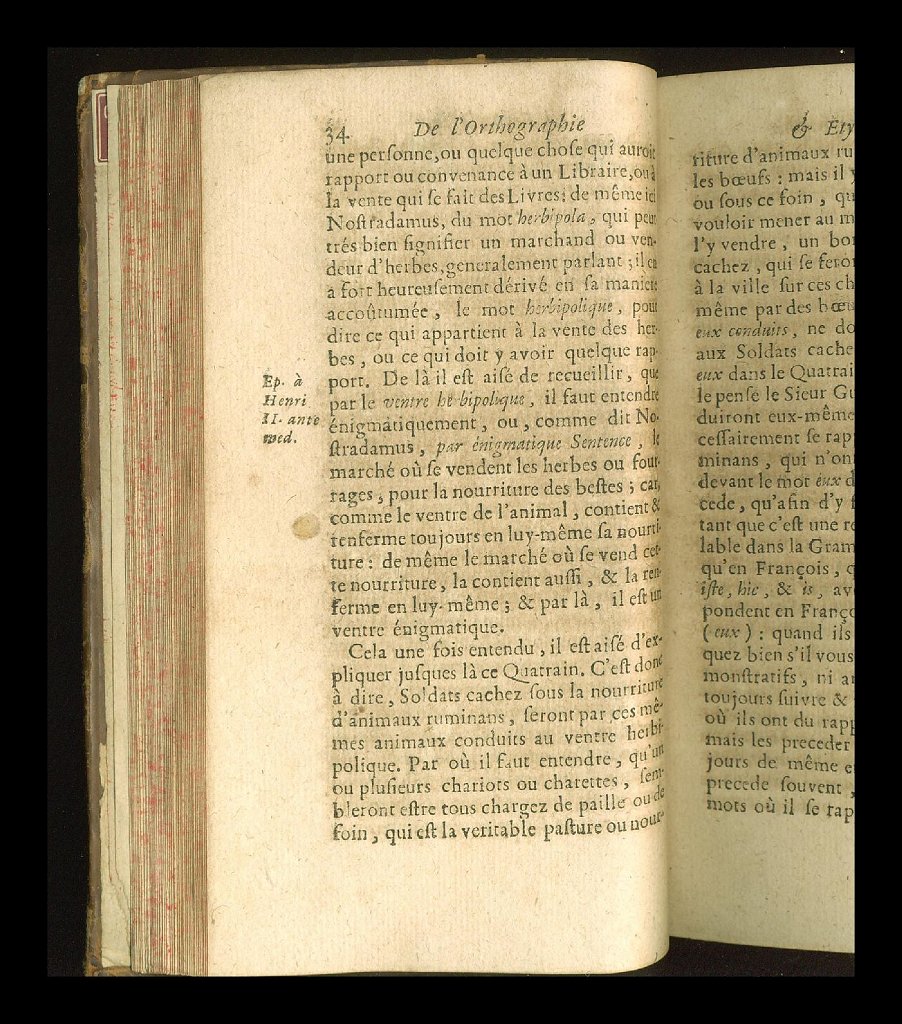 34
De l'Orthographie
une personne, ou quelque chose qui auroit
rapport ou convenance à un Libraire, ou à
la vente qui se fait des Livres; de même ici
Nostradamus, du mot herbipola, qui peut
trés bien signifier un marchand ou ven-
deur d'herbes, generalement parlant; il en
a fort heureusement dérivé en sa maniere
accoûtumée, le mot herbipolique, pour
dire ce qui appartient à la vente des her-
bes, ou ce qui doit y avoir quelque rap-
port. De là il est aisé de recueillir, que
par le ventre herbipolique, il faut entendre
énigmatiquement, ou, comme dit No-
stradamus, par énigmatique Sentence, le
marché où se vendent les herbes ou four-
rages, pour la nourriture des bestes; car,
comme le ventre de l'animal, contient &
renferme toujours en luy-même sa nourri-
ture: de même le marché où se vend cet-
te nourriture, la contient aussi, & la ren-
ferme en luy-même; & par là, il est un
ventre énigmatique.
Cela une fois entendu, il est aisé d'ex-
pliquer jusques là ce Quatrain. C'est donc
à dire, Soldats cachez sous la nourriture
d'animaux ruminans, seront par ces mê-
mes animaux conduits au ventre herbi-
polique. Par où il faut entendre, qu'un
ou plusieurs chariots ou charettes, sem-
bleront estre tous chargez de paille ou de
foin, qui est la veritable pasture ou nour-
Ep. à
Henri
II. ante
med.
& Ety
riture d'animaux ru
les bœufs: mais il y
ou sous ce foin, qu
vouloir mener au m
l'y vendre, un bon
cachez, qui se feron
à la ville sur ces ch
même par des bœu
eux conduits, ne do
aux Soldats cache
eux dans le Quatrai
le pense le Sieur Gu
duiront eux-même
cessairement se rap
minans, qui n'ont
devant le mot eux d
cede, qu'afin d'y f
tant que c'est une re
lable dans la Gram
qu'en François, q
iste, hic, & is, av
pondent en Franço
(eux): quand ils
quez bien s'il vous
monstratifs, ni a
toujours suivre &
où ils ont du rapp
mais les preceder
jours de même e
precede souvent,
mots où il se rap